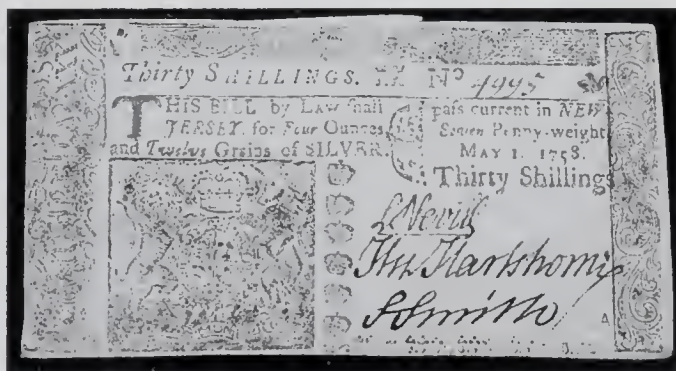 Thirty SHILLINGS. No 4995
THIS BILL by LAW ſhall paſs current in NEW
JERSEY, for Four Ounces, Seven Penny-weight
and Twelve Grains of SILVER. MAY 1. 1758.
Thirty Shillings
S Nevill
Hu Hartshorne
S Smith
A